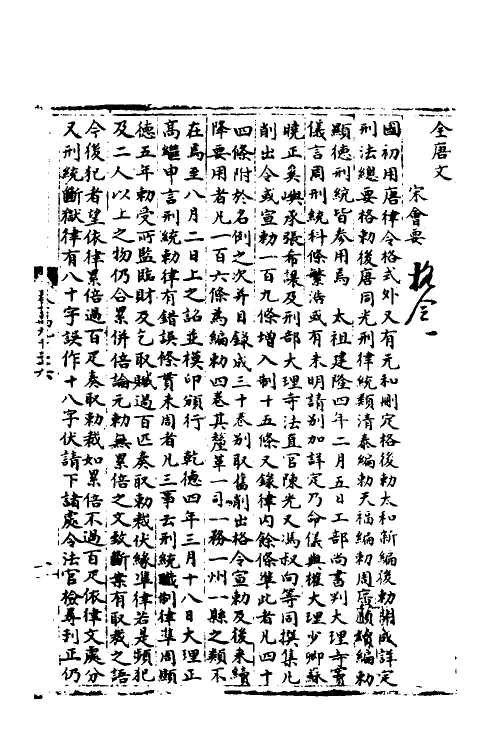 全唐文
宋會要
格令一
國初用唐律令格式外又有元和刪定格後勅太和新編後勅開成詳定
刑法總要格勅後唐同光刑律統類清泰編勅天福編勅周廣順續編勅
顯德刑統皆參用焉 太祖建隆四年二月五日工部尚書判大理寺竇
儀言周刑統科條繁浩或有未明請別加詳定乃命儀與權大理少卿蘇
曉正奚嶼承張希遜及刑部大理寺法直官陳光乂馮叔向等同撰集凡
削出令或宣勅一百九條增入制十五條又錄律內餘條準此者凡四十
四條附於名例之次并目錄成三十卷別取舊削出格令宣勅及後來續
降要用者凡一百六條為編勅四卷其釐革一司一務一州一縣之類不
在焉至八月二日上之詔並模印頒行 乾德四年三月十八日大理正
高繼申言刑統勅律有錯誤條貫未周者凡三事云刑統職制律準周顯
德五年勅受所監臨財及乞取贓過百匹奏取勅裁伏緣準律若是頻犯
及二人以上之物仍合累併倍論元勅無累倍之文致斷案有取裁之語
今後犯者望依律累倍過百疋奏取勅裁如累倍不過百疋依律文處分
又刑統斷獄律有八十字誤作十八字伏請下諸處令法官檢尋刊正仍